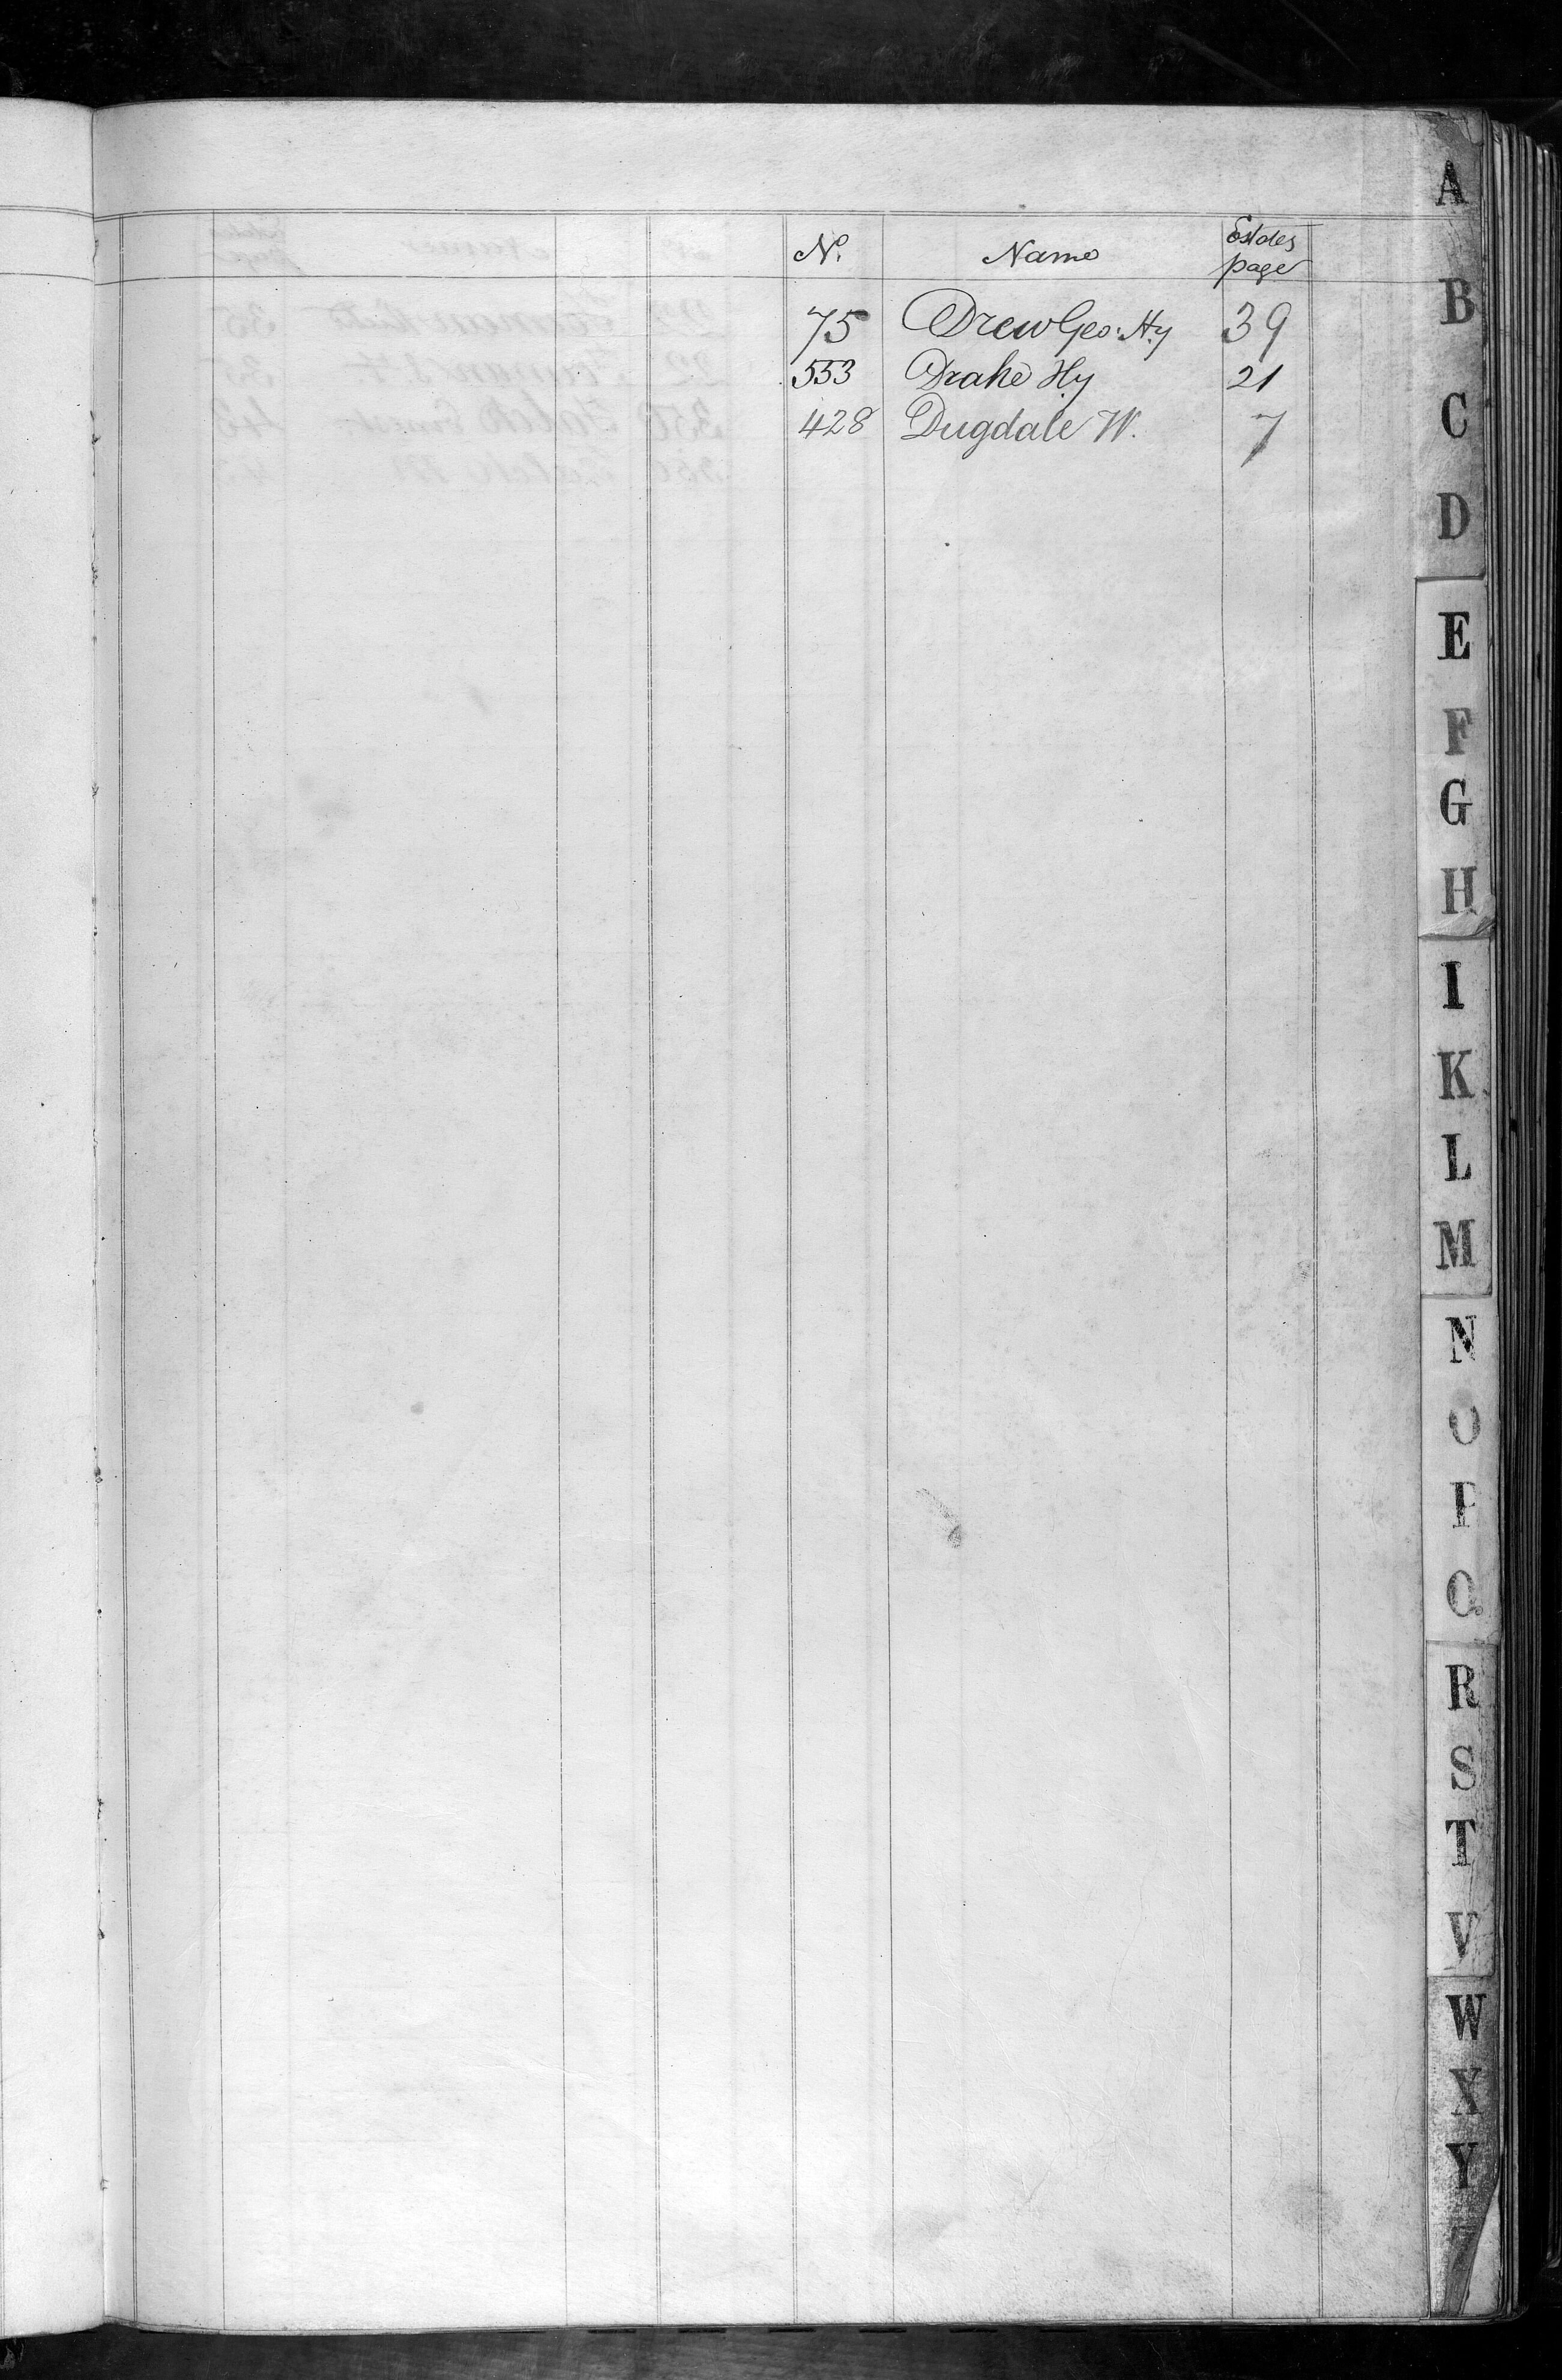 N. Name Estdes page
75 Drew Geo: Hy 39
553 Drake Hy 21
428 Dugdale W. 7
A
B
C
D
E
F
G
H
I
K
L
M
N
O
P
Q
R
S
T
V
W
X
Y